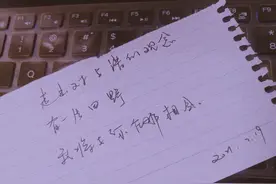 走出对与错的观念
有一片田野
我将与你在那相遇。